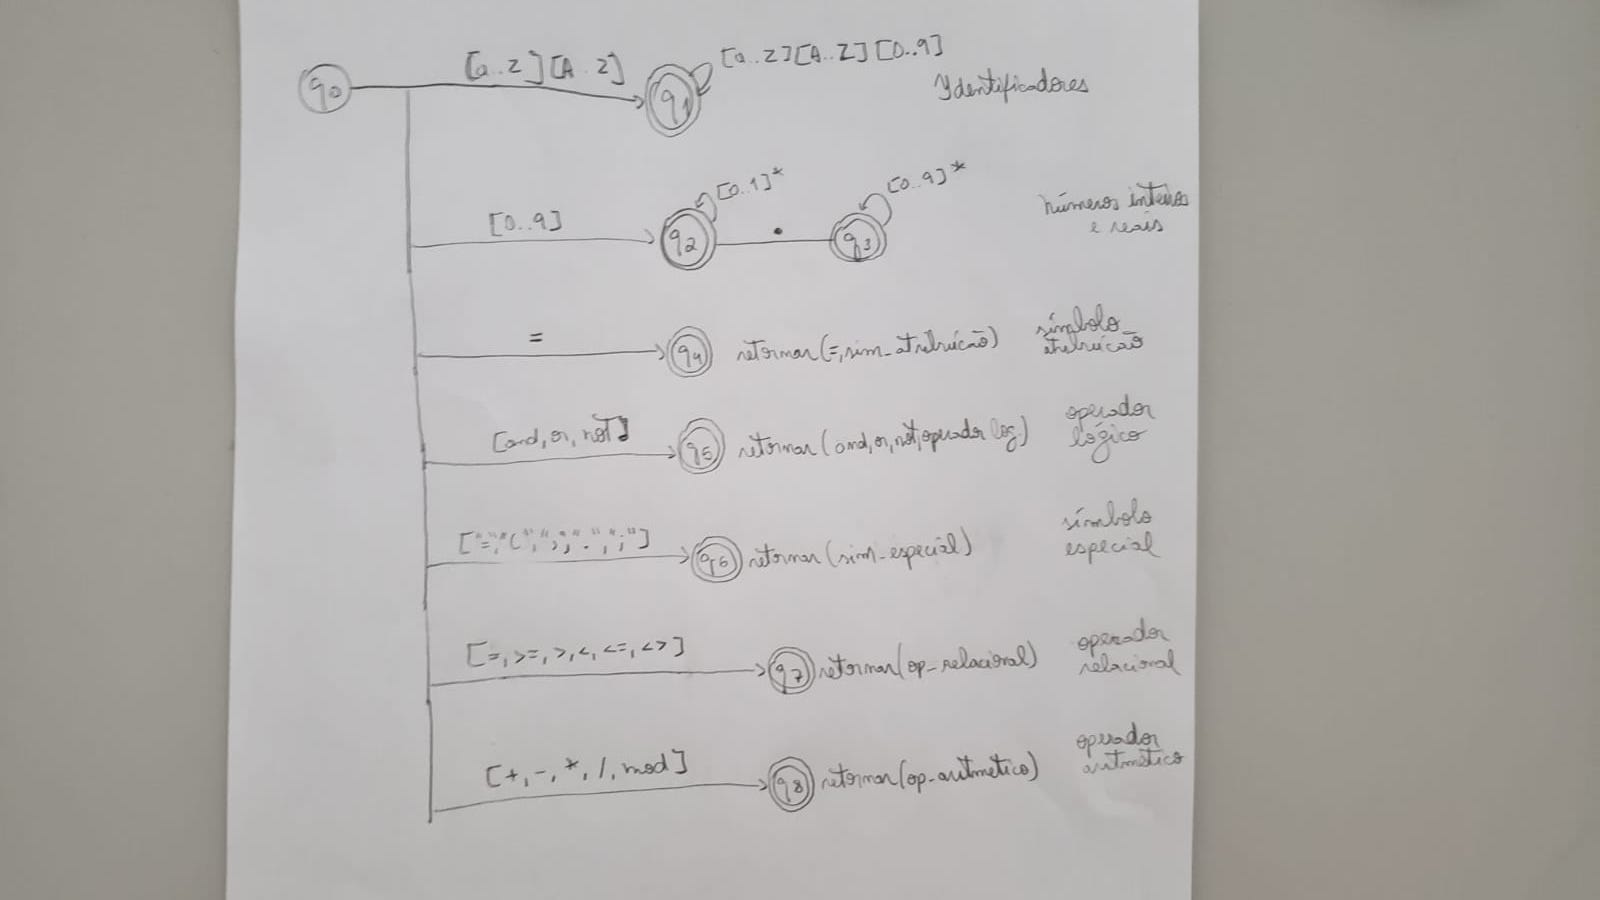 q0 [a..z][A..Z] q1 [a..z][A..Z][0..9] Ydentificadores
[0..9] q2 [0..1]* . q3 [0..9]* números inteiros
e reais
= q4 retornar(=,sim_atribuicão) símbolo_
atribuicão
[and, or, not] q5 retornar(and,or,not,operador log.) operador
lógico
q6 retornar(sim_especial) símbolo
especial
[=,>=,>,<,<=,<>] q7 retornar(op_relacional) operador
relacional
[+,-,*,/,mod] q8 retornar(op_aritmetico) operador
aritmético